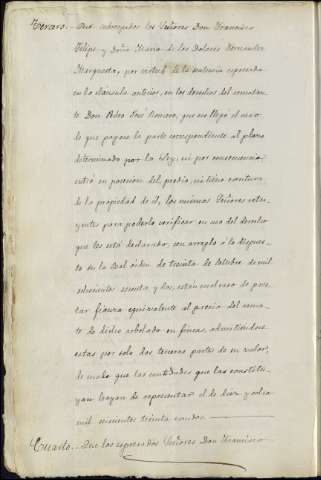 Tercero.- Que subrogados los Señores Don Francisco
Felipe y Doña Maria de los Dolores Fernandez
por virtud de la sentencia expresada
en la cláusula anterior, en los derechos del rematan-
te Don Pedro José Romero, que no llegó el caso
de que pagase la parte correspondiente al plazo
determinado por la ley, ni por consecuencia
entró en posesion del predio, ni tiene escritura
de la propiedad de él, los mismos Señores retra-
yentes para poderlo verificar en uso del derecho
que les está declarado, con arreglo á lo dispues-
to en la Real órden de treinta de Octubre de mil
ochocientos sesenta y dos, están en el caso de pres-
tar fianza equivalente al precio del rema-
te de dicho arbolado en fincas, admitiéndose
estas por solo dos terceras partes de su valor,
de modo que las cantidades que las constitu-
yan hayan de representar el de diez y ocho
mil escudos.
Cuarto.- Que los espresados Señores Don Francisco